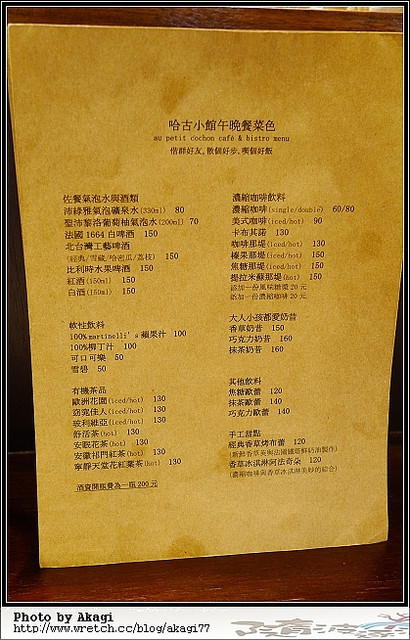 哈古小館午晚餐菜色
au petit cochon café & bistro menu
偕群好友,散個好步,喫個好飯
佐餐氣泡水與酒類
沛綠雅氣泡礦泉水(330ml) 80
聖沛黎洛葡萄柚氣泡水(200ml) 70
法國 1664 白啤酒 150
北台灣工藝啤酒
(經典/雪藏/哈密瓜/荔枝) 150
比利時水果啤酒 150
紅酒(150ml) 150
白酒(150ml) 150
軟性飲料
100%martinelli's 蘋果汁 100
100%柳丁汁 100
可口可樂 50
雪碧 50
有機茶品
歐洲花園(iced/hot) 130
窈窕佳人(iced/hot) 130
玻利維亞(iced/hot) 130
舒活茶(hot) 130
安眠花茶(hot) 130
安徽祁門紅茶(hot) 130
寧靜天堂花紅葉茶(hot) 130
酒資開瓶費為一瓶 200 元
濃縮咖啡飲料
濃縮咖啡(single/double) 60/80
美式咖啡(iced/hot) 90
卡布其諾 130
咖啡那堤(iced/hot) 130
榛果那堤(iced/hot) 150
焦糖那堤(iced/hot) 150
提拉米蘇那堤(hot) 150
添加一份風味糖漿 20 元
添加一份濃縮咖啡 20 元
大人小孩都愛奶昔
香草奶昔 150
巧克力奶昔 160
抹茶奶昔 160
其他飲料
焦糖歐蕾 120
抹茶歐蕾 140
巧克力歐蕾 140
手工甜點
經典香草烤布蕾 120
(新鮮香草莢與法國鐵塔鮮奶油製作)
香草冰淇淋阿法奇朵 120
(濃縮咖啡與香草冰淇淋美妙的綜合)
Photo by Akagi
http://www.wretch.cc/blog/akagi77